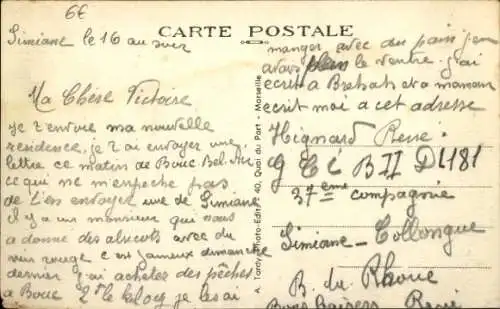 6€
CARTE POSTALE
Simiane le 16 au soir
Ma Chère Victoire
je t'envoie ma nouvelle
residence. je t'ai envoyer une
lettre ce matin de Bouc Bel Air
ce qui ne m'enpeche pas
de t'en envoyer une de Simiane
Il y a un monsieur qui nous
a donne des abricots avec du
vin rouge c'est fameux dimanche
dernier j'ai acheter des pêches
a Bouc 2f le kilog je les ai
A. Tardy Photo-Edit. 40, Quai du Port - Marseille
manger avec du pain j'en
avais plein le ventre. j'ai
ecrit a Brehat et a maman
ecrit moi a cet adresse
Hignard René
G C I B II D4181
37eme compagnie
Simiane - Collongue
B. du Rhone
Bons baisers René